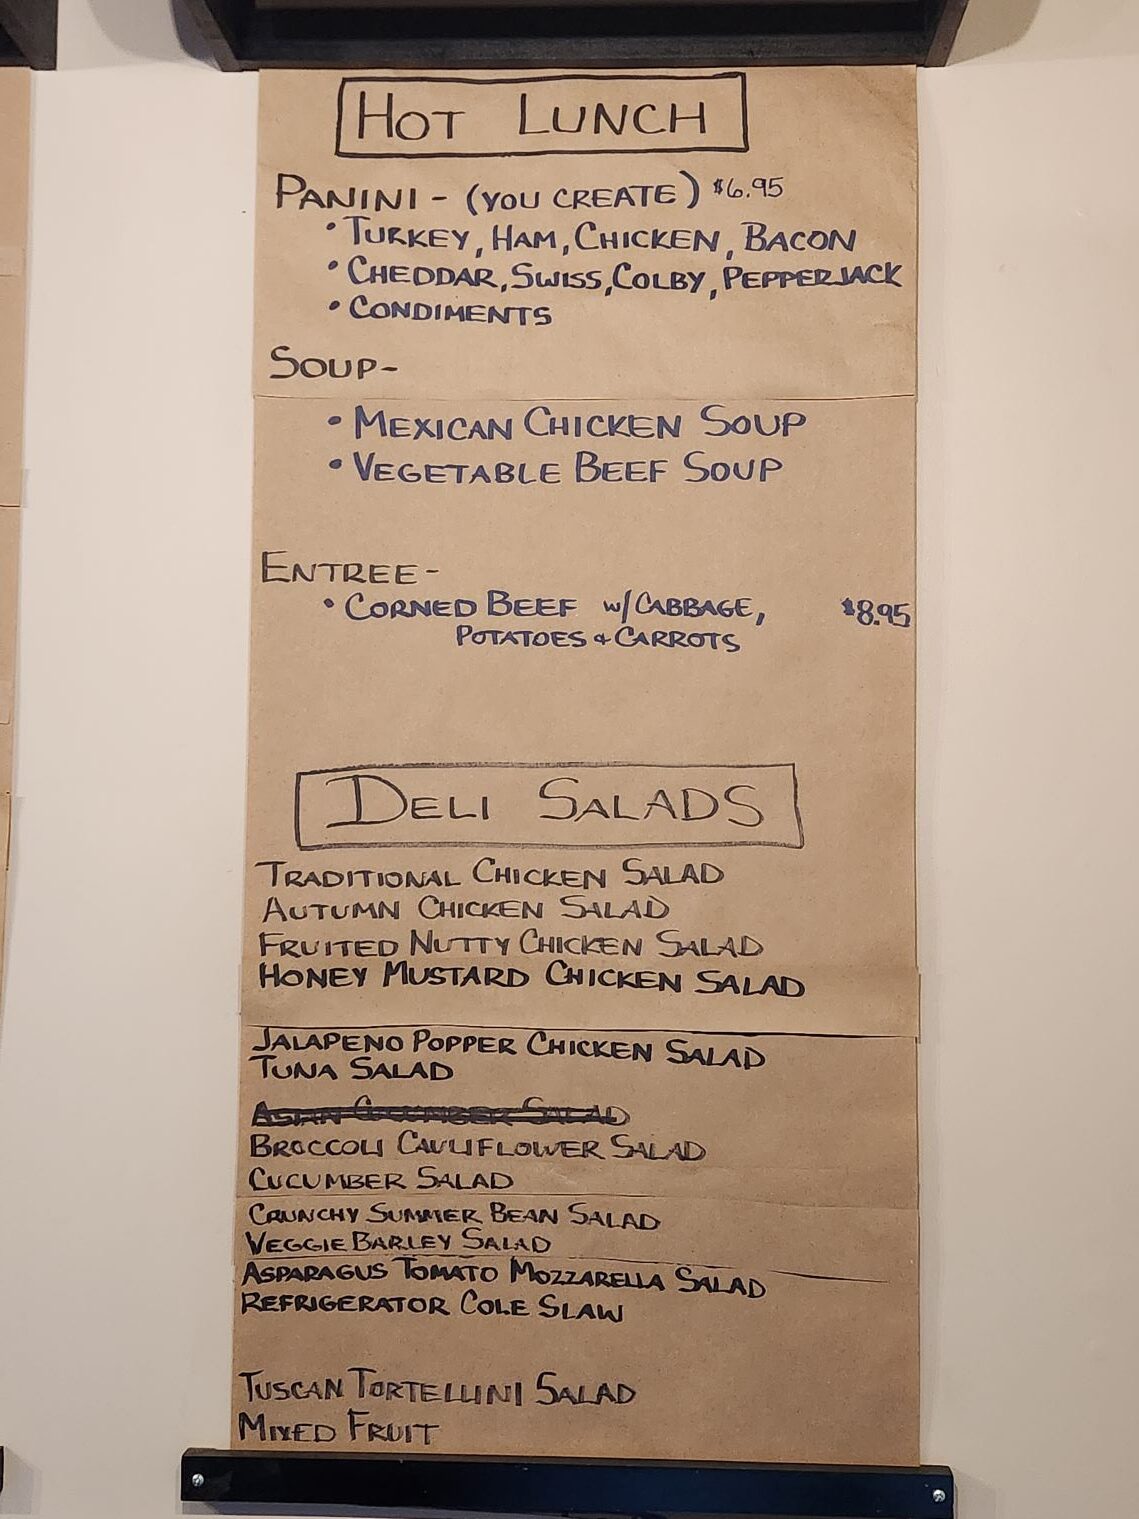 HOT LUNCH
PANINI - (YOU CREATE) $6.95
• TURKEY, HAM, CHICKEN, BACON
• CHEDDAR, SWISS, COLBY, PEPPERJACK
• CONDIMENTS
SOUP-
• MEXICAN CHICKEN SOUP
• VEGETABLE BEEF SOUP
ENTREE-
• CORNED BEEF w/ CABBAGE, $8.95
POTATOES + CARROTS
DELI SALADS
TRADITIONAL CHICKEN SALAD
AUTUMN CHICKEN SALAD
FRUITED NUTTY CHICKEN SALAD
HONEY MUSTARD CHICKEN SALAD
JALAPENO POPPER CHICKEN SALAD
TUNA SALAD
ASIAN CUCUMBER SALAD
BROCCOLI CAULIFLOWER SALAD
CUCUMBER SALAD
CRUNCHY SUMMER BEAN SALAD
VEGGIE BARLEY SALAD
ASPARAGUS TOMATO MOZZARELLA SALAD
REFRIGERATOR COLE SLAW
TUSCAN TORTELLINI SALAD
MIXED FRUIT